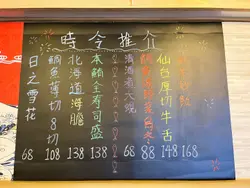 時令推介
168
仙台厚切牛舌 148
88
清酒煮大蜆 68
本鮪全壽司盛 138
北海道海膽 138
鯛魚薄切8切 108
日之雪花 68